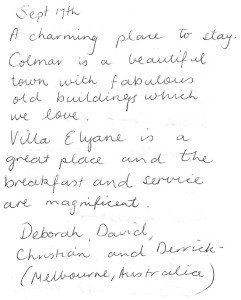 Sept 17th
A charming place to stay.
Colmar is a beautiful
town with fabulous
old buildings which
we love.
Villa Elyane is a
great place and the
breakfast and service
are magnificent.
Deborah, David,
Christian and Derrick-
(Melbourne, Australia)